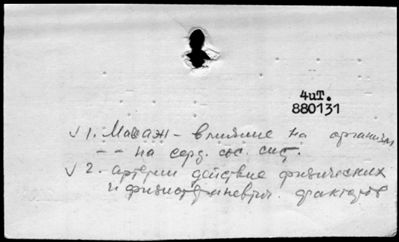 4иТ.
880131
✓ 1. Массаж - влияние на организм
- - на серд. сос. сист.
✓ 2. артерии действие физических
и факторов